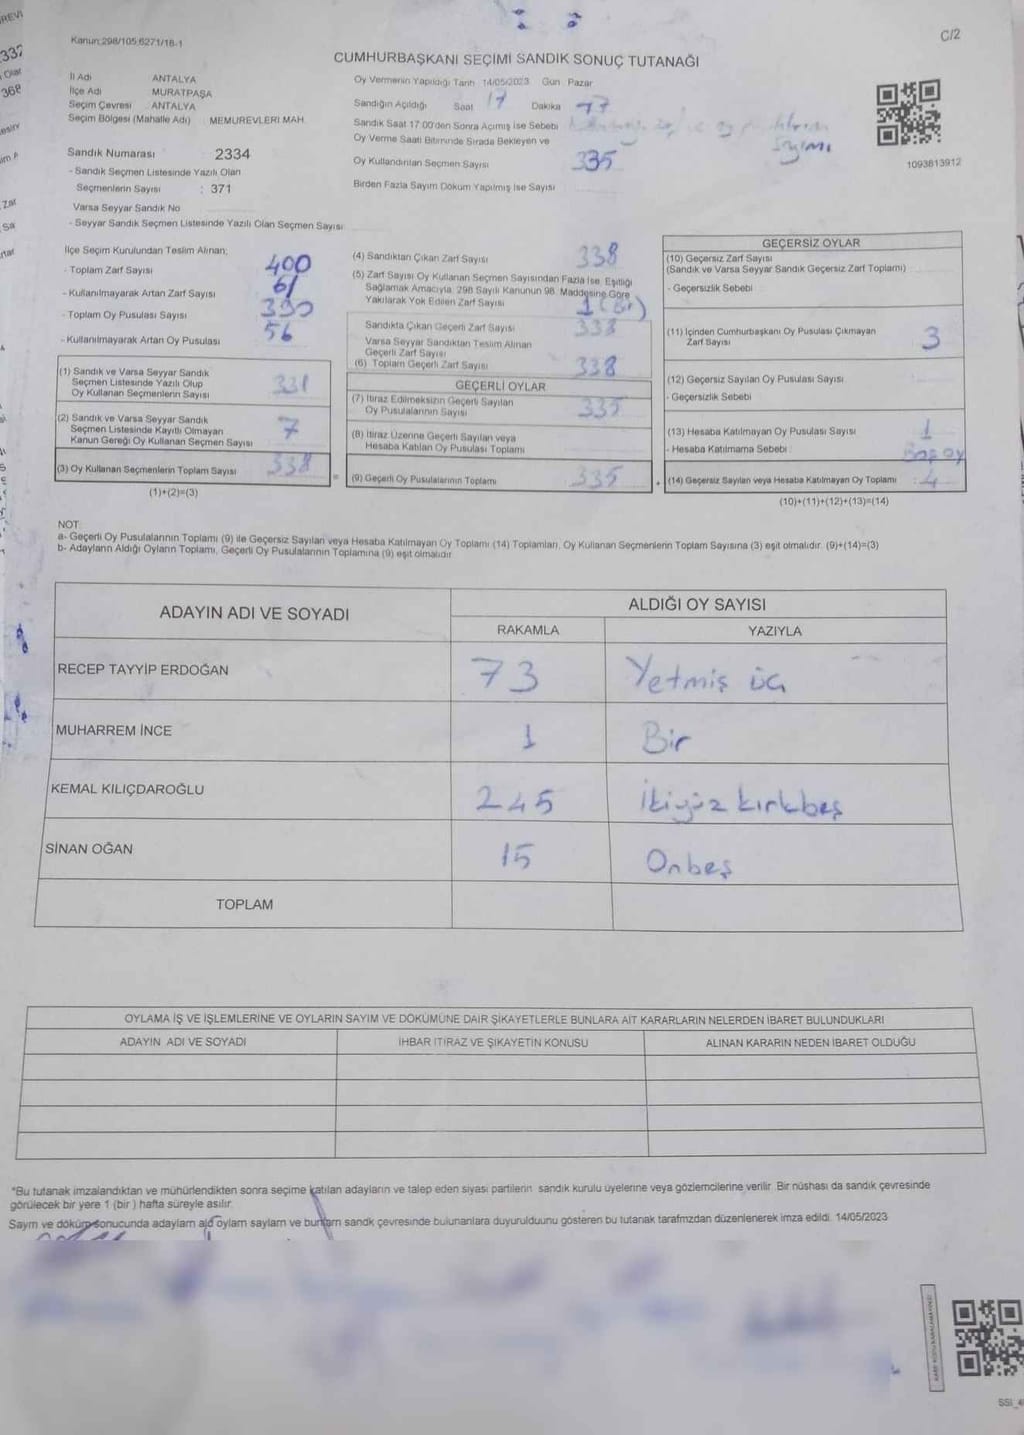 Kanun:298/105,6271/18-1
C/2
CUMHURBAŞKANI SEÇİMİ SANDIK SONUÇ TUTANAĞI
İl Adı ANTALYA
İlçe Adı MURATPAŞA
Seçim Çevresi : ANTALYA
Seçim Bölgesi (Mahalle Adı) MEMUREVLERİ MAH.
Sandık Numarası 2334
- Sandık Seçmen Listesinde Yazılı Olan
Seçmenlerin Sayısı : 371
Varsa Seyyar Sandık No
- Seyyar Sandık Seçmen Listesinde Yazılı Olan Seçmen Sayısı
Oy Vermenin Yapıldığı Tarih 14/05/2023 Gün Pazar
Sandığın Açıldığı Saat 17 Dakika
Sandık Saat 17.00'den Sonra Açılmış İse Sebebi
Oy Verme Saati Bitiminde Sırada Bekleyen ve
Oy Kullandırılan Seçmen Sayısı 335
Birden Fazla Sayım Döküm Yapılmış İse Sayısı
1093813912
İlçe Seçim Kurulundan Teslim Alınan;
- Toplam Zarf Sayısı 400
- Kullanılmayarak Artan Zarf Sayısı 61
- Toplam Oy Pusulası Sayısı
- Kullanılmayarak Artan Oy Pusulası 56
(1) Sandık ve Varsa Seyyar Sandık
Seçmen Listesinde Yazılı Olup
Oy Kullanan Seçmenlerin Sayısı 331
(2) Sandık ve Varsa Seyyar Sandık
Seçmen Listesinde Kayıtlı Olmayan
Kanun Gereği Oy Kullanan Seçmen Sayısı 7
(3) Oy Kullanan Seçmenlerin Toplam Sayısı 338
(1)+(2)=(3)
(4) Sandıktan Çıkan Zarf Sayısı 338
(5) Zarf Sayısı Oy Kullanan Seçmen Sayısından Fazla İse, Eşitliği
Sağlamak Amacıyla, 298 Sayılı Kanunun 98. Maddesine Göre
Yakılarak Yok Edilen Zarf Sayısı 1 (Bir)
Sandıkta Çıkan Geçerli Zarf Sayısı 338
Varsa Seyyar Sandıktan Teslim Alınan
Geçerli Zarf Sayısı
(6) Toplam Geçerli Zarf Sayısı 338
GEÇERLİ OYLAR
(7) İtiraz Edilmeksizin Geçerli Sayılan
Oy Pusulalarının Sayısı 335
(8) İtiraz Üzerine Geçerli Sayılan veya
Hesaba Katılan Oy Pusulası Toplamı
= (9) Geçerli Oy Pusulalarının Toplamı 335
GEÇERSİZ OYLAR
(10) Geçersiz Zarf Sayısı
(Sandık ve Varsa Seyyar Sandık Geçersiz Zarf Toplamı)
- Geçersizlik Sebebi
(11) İçinden Cumhurbaşkanı Oy Pusulası Çıkmayan
Zarf Sayısı 3
(12) Geçersiz Sayılan Oy Pusulası Sayısı
- Geçersizlik Sebebi
(13) Hesaba Katılmayan Oy Pusulası Sayısı 1
- Hesaba Katılmama Sebebi : Boş oy
+ (14) Geçersiz Sayılan veya Hesaba Katılmayan Oy Toplamı : 4
(10)+(11)+(12)+(13)=(14)
NOT:
a- Geçerli Oy Pusulalarının Toplamı (9) ile Geçersiz Sayılan veya Hesaba Katılmayan Oy Toplamı (14) Toplamları, Oy Kullanan Seçmenlerin Toplam Sayısına (3) eşit olmalıdır. (9)+(14)=(3)
b- Adayların Aldığı Oyların Toplamı, Geçerli Oy Pusulalarının Toplamına (9) eşit olmalıdır.
ADAYIN ADI VE SOYADI ALDIĞI OY SAYISI
RAKAMLA YAZIYLA
RECEP TAYYİP ERDOĞAN 73 Yetmiş üç
MUHARREM İNCE 1 Bir
KEMAL KILIÇDAROĞLU 245 İkiyüz kırkbeş
SİNAN OĞAN 15 Onbeş
TOPLAM
OYLAMA İŞ VE İŞLEMLERİNE VE OYLARIN SAYIM VE DÖKÜMÜNE DAİR ŞİKAYETLERLE BUNLARA AİT KARARLARIN NELERDEN İBARET BULUNDUKLARI
ADAYIN ADI VE SOYADI İHBAR İTİRAZ VE ŞİKAYETİN KONUSU ALINAN KARARIN NEDEN İBARET OLDUĞU
*Bu tutanak imzalandıktan ve mühürlendikten sonra seçime katılan adayların ve talep eden siyasi partilerin sandık kurulu üyelerine veya gözlemcilerine verilir. Bir nüshası da sandık çevresinde
görülecek bir yere 1 (bir ) hafta süreyle asılır.
Sayım ve döküm sonucunda adaylarn ald oylarn saylarn ve bunlarn sandk çevresinde bulunanlara duyurulduunu gösteren bu tutanak tarafmzdan düzenlenerek imza edildi. 14/05/2023